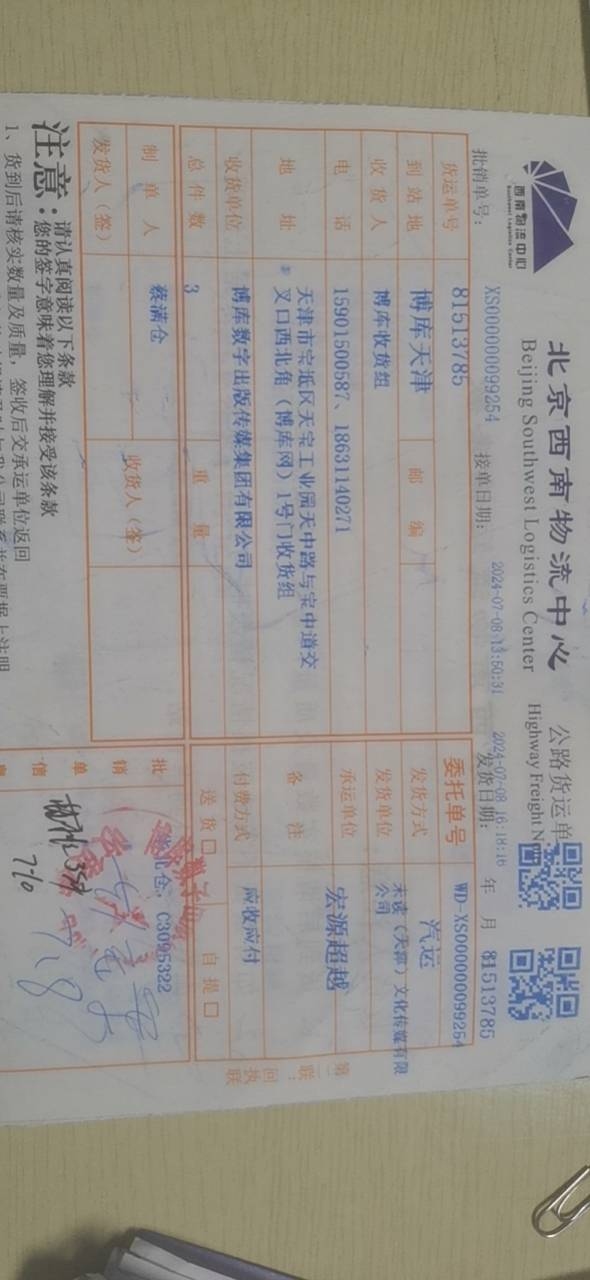 西南物流中心
Southwest Logistics Center
北京西南物流中心
Beijing Southwest Logistics Center
公路货运单
Highway Freight N
批销单号: XS000000099254 接单日期: 2024-07-08 13:50:31 发货日期: 2024-07-08 16:18:16 年 月 81513785
货运单号 81513785
委托单号 WD-XS000000099254
到站地 博库天津 邮编
发货方式 汽运
收货人 博库收货组
发货单位 未读（天津）文化传媒有限公司
电话 15901500587、18631140271
承运单位 宏源超越
地址 天津市宝坻区天宝工业园天中路与宝中道交
叉口西北角（博库网）1号门收货组
备注
收货单位 博库数字出版传媒集团有限公司
付费方式 应收应付
总件数 3 重量
送货□ 自提□
制单人 蔡满仓 收货人（签）
发货人（签）
批销单信息
北仓，C3095322
7-10
7.8
第二联：回执联
注意:
请认真阅读以下条款
您的签字意味着您理解并接受该条款
1、货到后请核实数量及质量，签收后交承运单位返回